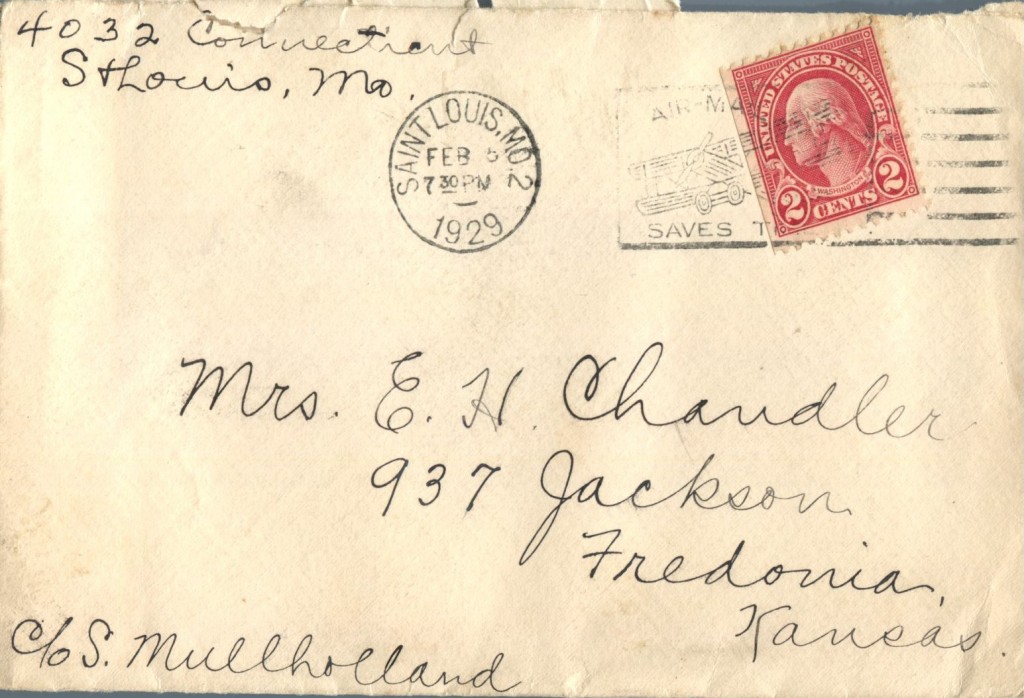 4032 Connecticut
St Louis, Mo.
SAINT LOUIS, MO. 2
FEB 5
7 30 PM
1929
AIR-MA
SAVES T
UNITED STATES POSTAGE
WASHINGTON
2 CENTS 2
Mrs. E. H. Chandler
937 Jackson
Fredonia,
Kansas.
c/o S. Mullholland